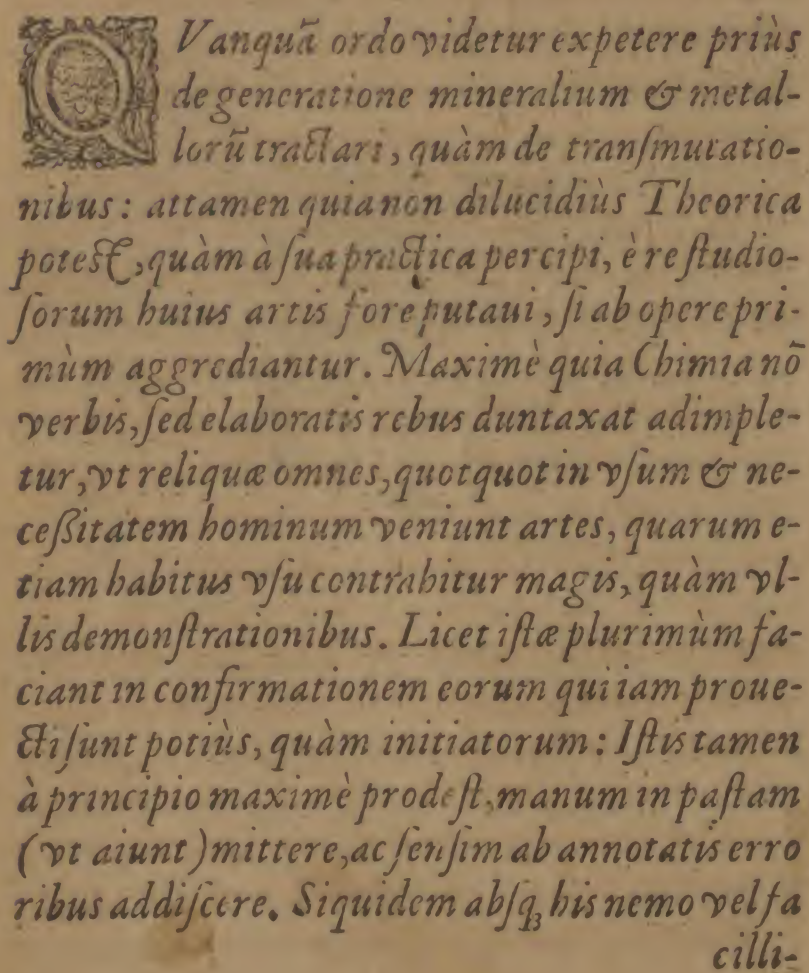 QVanquã ordo videtur expetere priùs
de generatione mineralium & metal-
lorũ tractari, quàm de tranſmutatio-
nibus: attamen quia non dilucidiùs Theorica
poteſt, quàm à ſua practica percipi, è re ſtudio-
ſorum huius artis fore putaui, ſi ab opere pri-
mùm aggrediantur. Maximè quia Chimia nõ
verbis, ſed elaboratis rebus duntaxat adimple-
tur, vt reliquæ omnes, quotquot in vſum & ne-
ceſſitatem hominum veniunt artes, quarum e-
tiam habitus vſu contrahitur magis, quàm vl-
lis demonſtrationibus. Licet iſtæ plurimùm fa-
ciant in confirmationem eorum qui iam proue-
cti ſunt potiùs, quàm initiatorum: Iſtis tamen
à principio maximè prodeſt, manum in paſtam
(vt aiunt) mittere, ac ſenſim ab annotatis erro
ribus addiſcere. Siquidem abſq; his nemo vel fa
cilli-